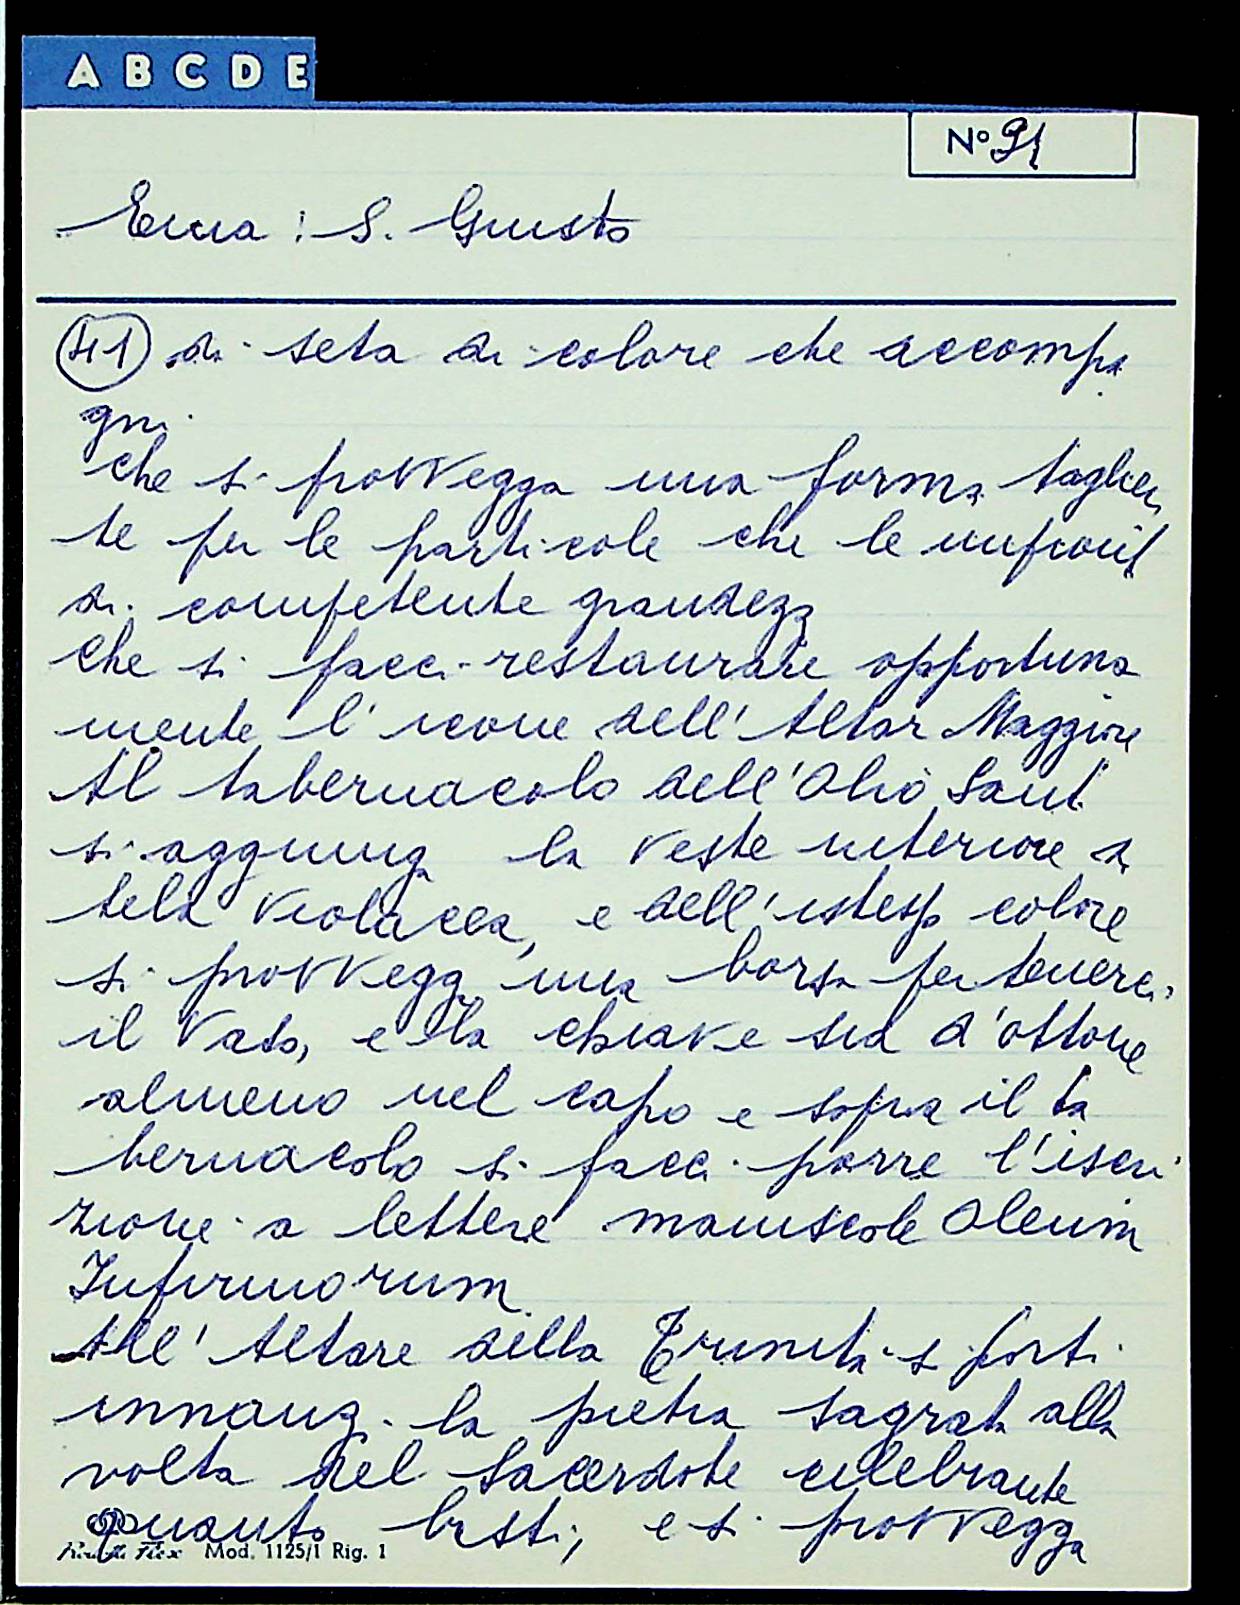 A B C D E
Nº 91
Enna: S. Giusto
41 di seta di colore che accompa
gni.
che si provvegga una forma taglien
te per le particole che le
di competente grandezza
che si facci restaurare opportuna
mente l'icone dell'Altar Maggiore
Al tabernacolo dell'Olio Santo
si aggiunga la veste interiore di
tela violacea, e dell'istesso colore
si provvegga una borsa per tenerci
il vaso, e la chiave sia d'ottone
almeno nel capo e sopra il ta
bernacolo si facci porre l'iscri
zione a lettere maiuscole Oleum
Infirmorum
All'Altare della Trinità si porti
innanzi la pietra sagrata alla
volta del Sacerdote celebrante
quanto basti, e si provvegga
Flex Mod. 1125/1 Rig. 1